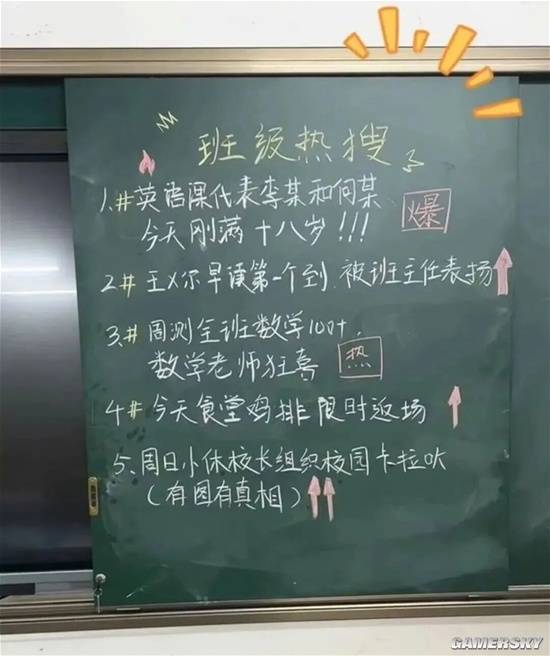 班级热搜
1.#英语课代表李某和何某
今天刚满十八岁!!!
爆
2#王X尔早读第一个到.被班主任表扬
3.#周测全班数学100+,
数学老师狂喜
热
4#今天食堂鸡排限时返场
5、周日小休校长组织校园卡拉OK
(有图有真相)
GAMERSKY